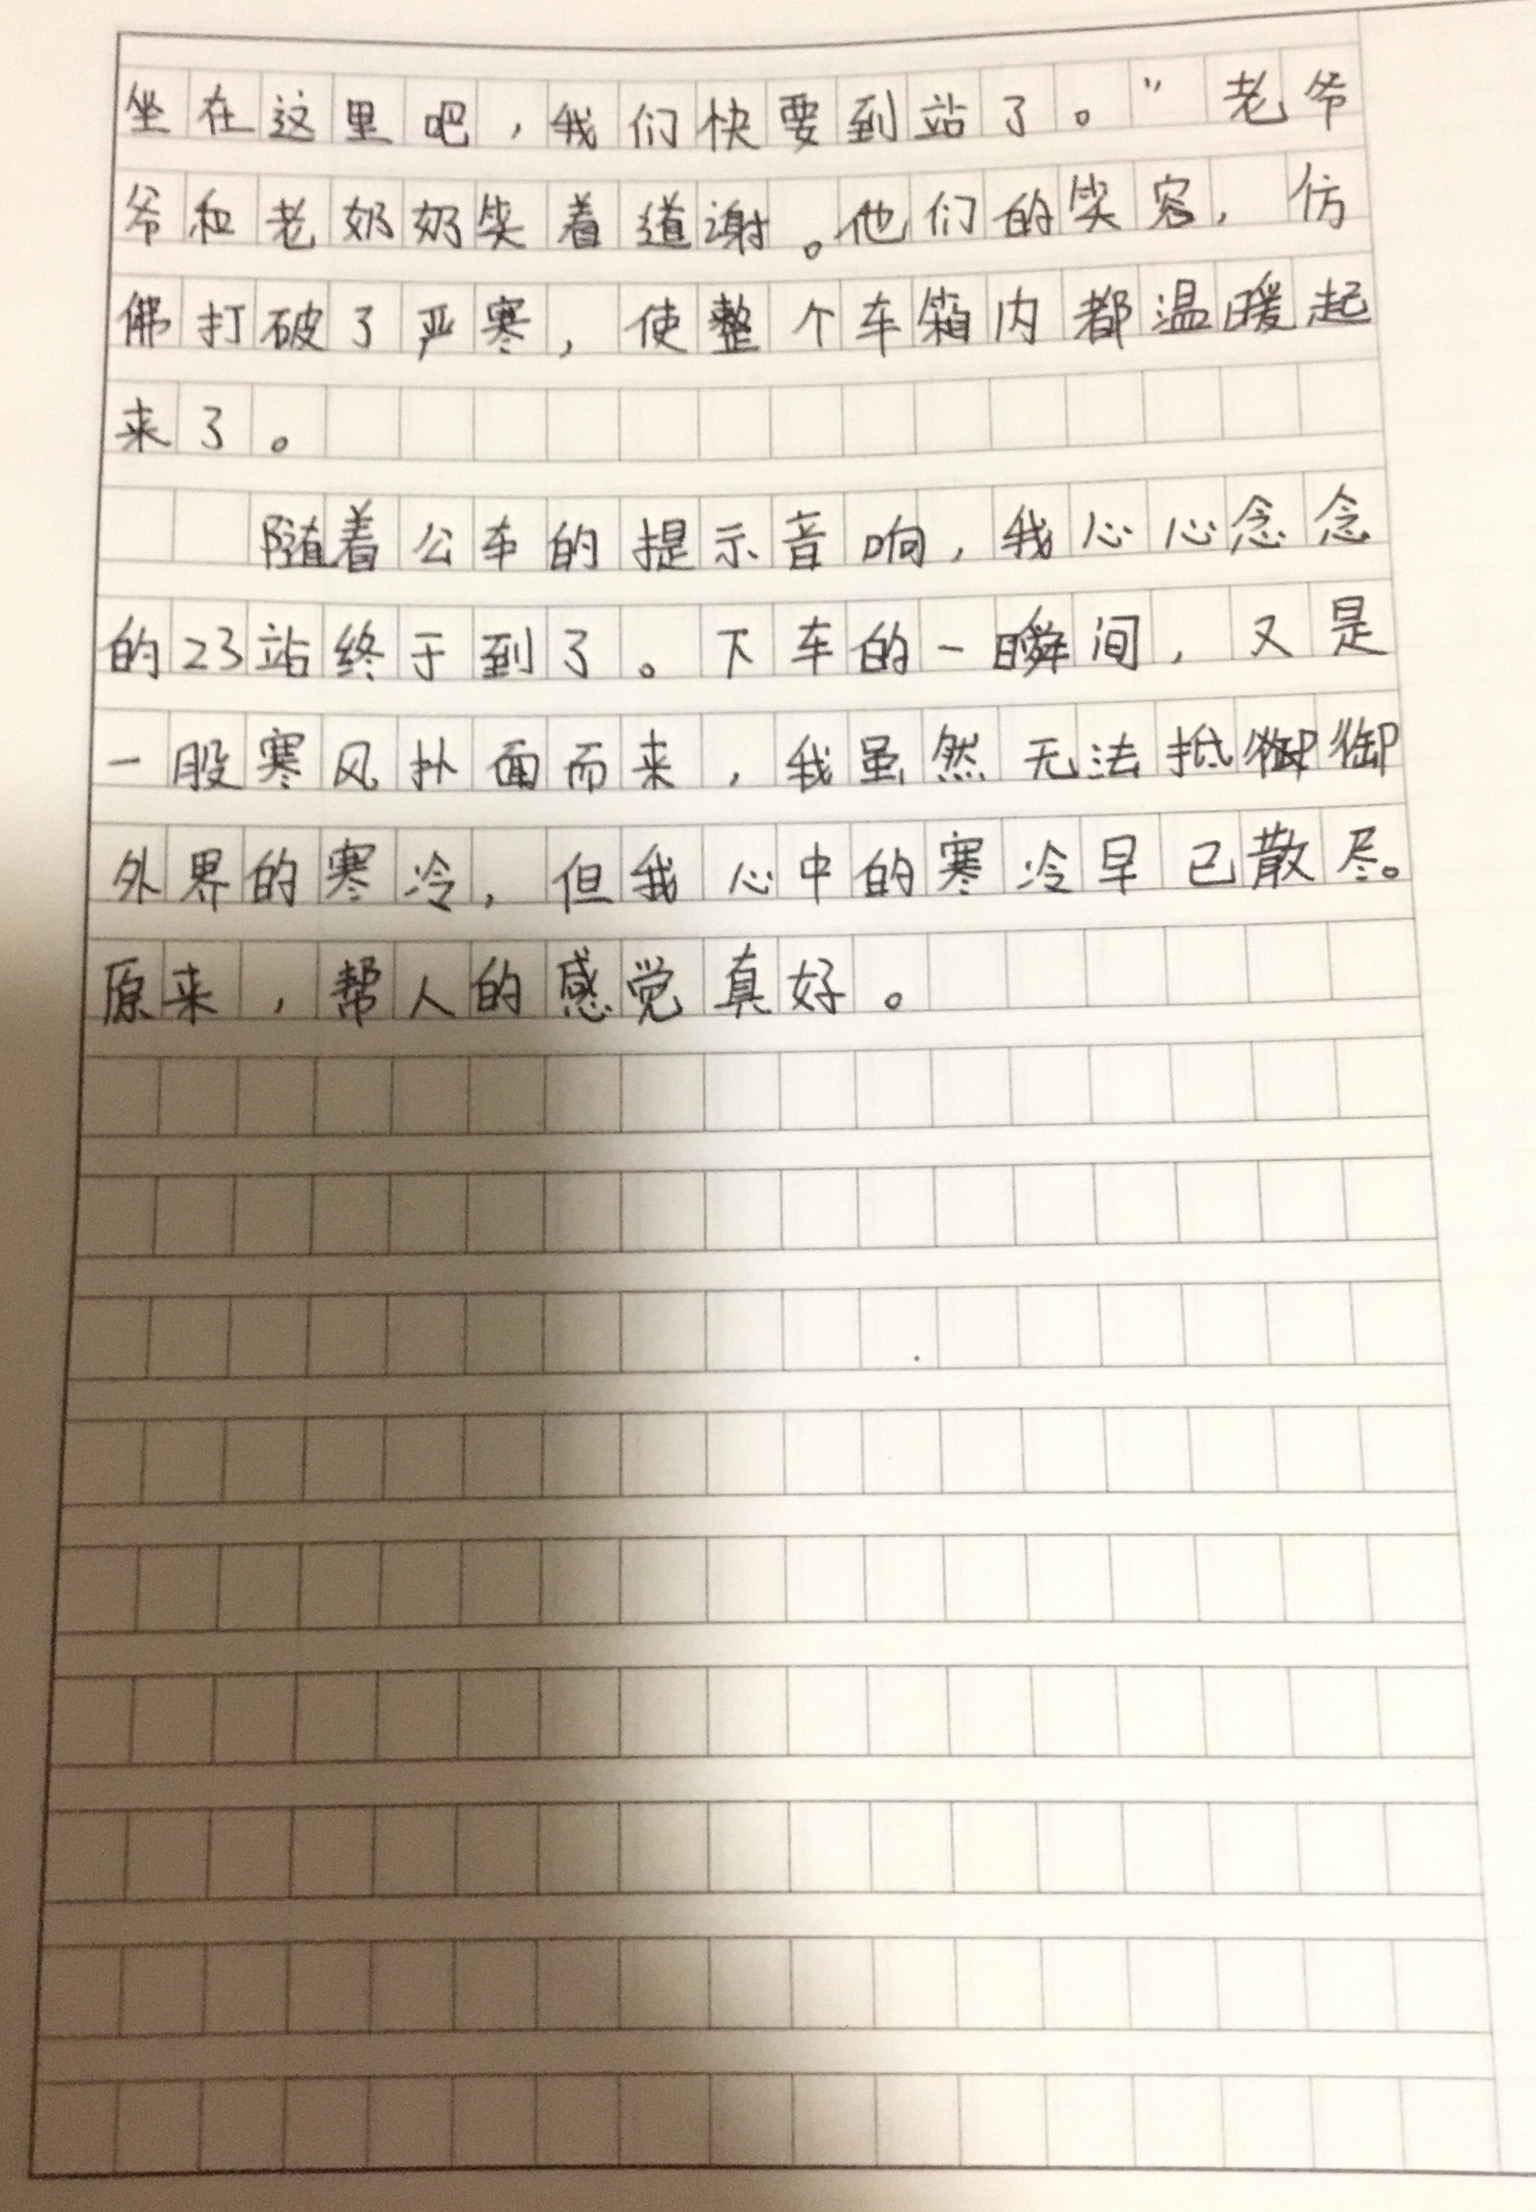 坐在这里吧，我们快要到站了。”老爷
爷和老奶奶笑着道谢。他们的笑容，仿
佛打破了严寒，使整个车箱内都温暖起
来了。
随着公车的提示音响，我心心念念
的23站终于到了。下车的一瞬间，又是
一股寒风扑面而来，我虽然无法抵御
外界的寒冷，但我心中的寒冷早已散尽。
原来，帮人的感觉真好。